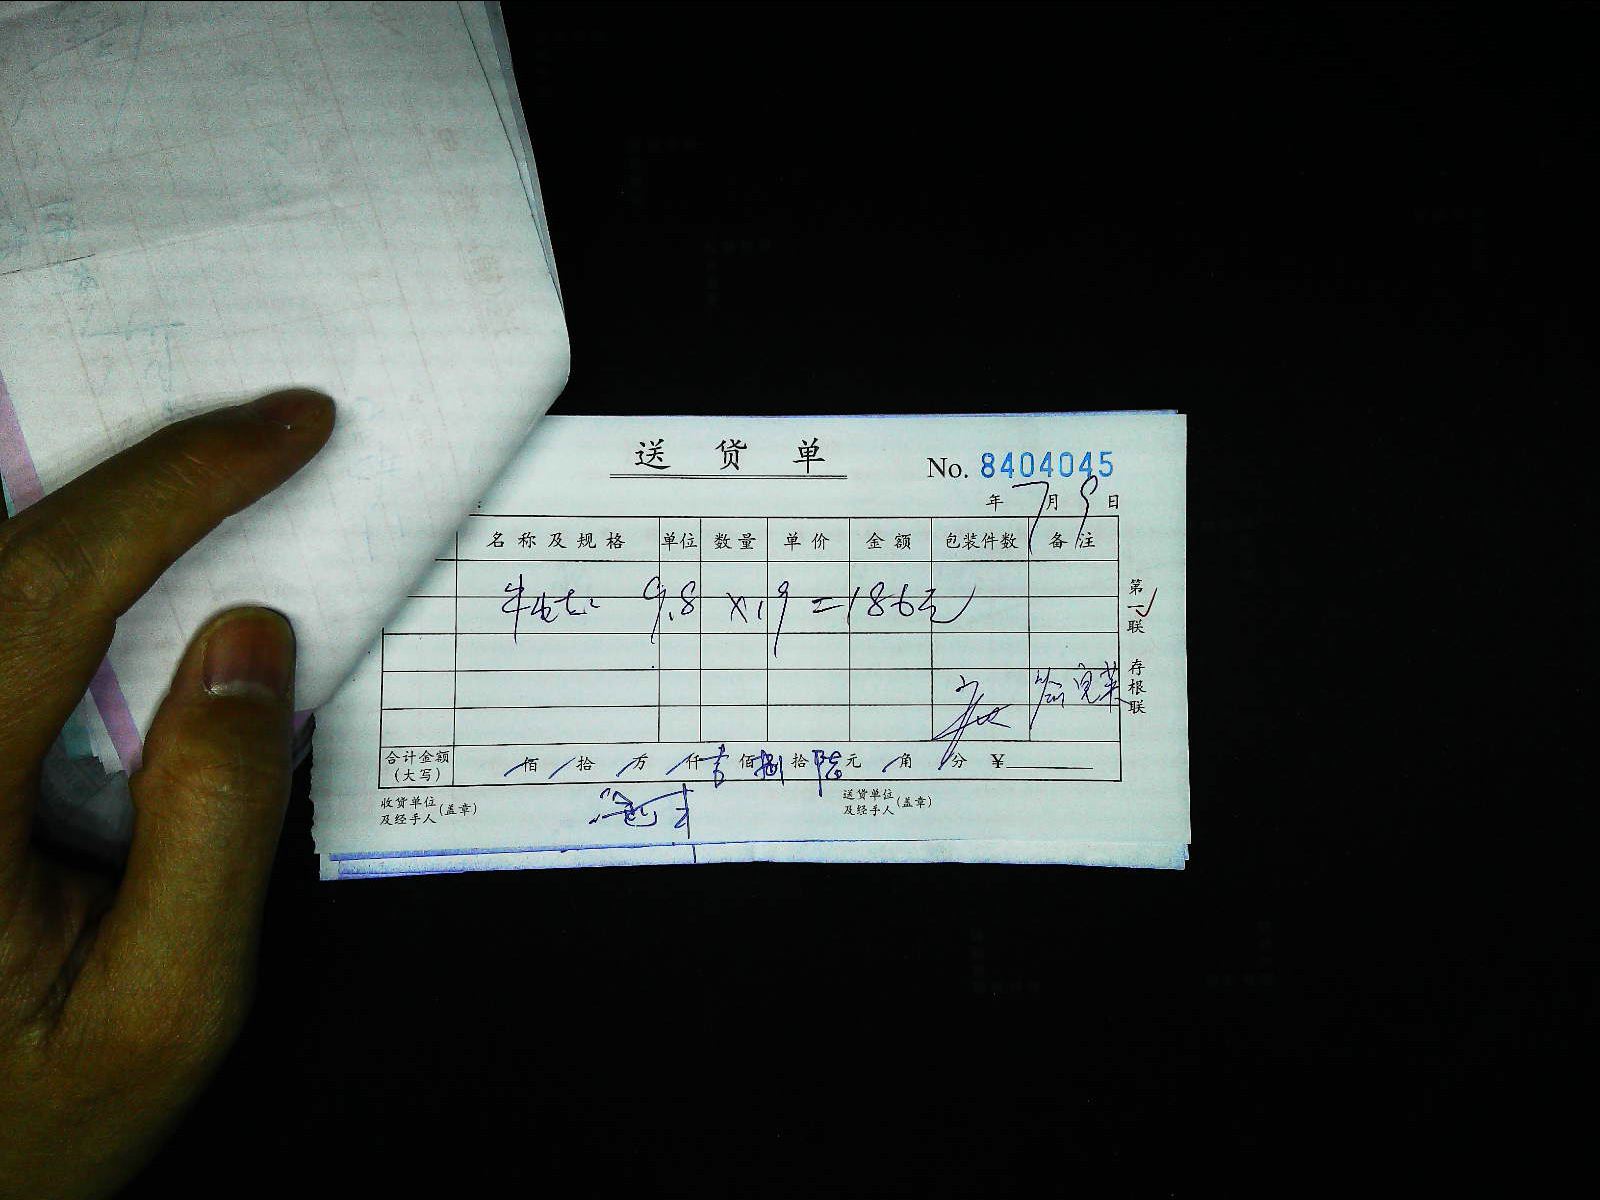 送 货 单
No. 8404045
年 7 月 9 日
名称及规格 单位 数量 单价 金额 包装件数 备注
9.8 ×19=186元
合计金额(大写) 佰 拾 万 仟 壹 佰 捌 拾 陆 元 角 分 ¥
收货单位及经手人(盖章) 送货单位及经手人(盖章)
第一联 存根联